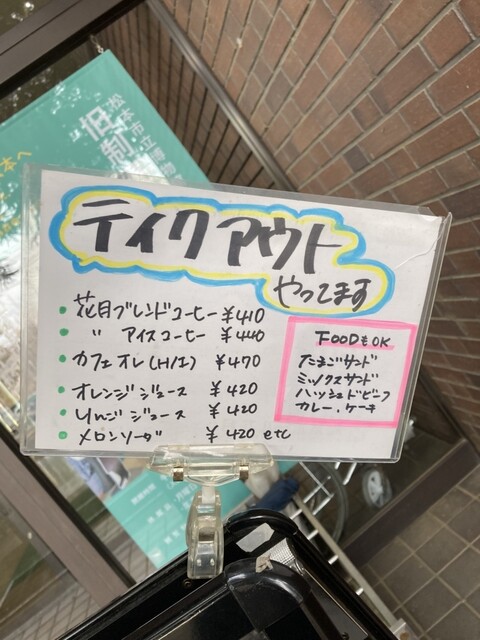 本へ
松本市立博
旧制
テイクアウト
やってます
• 花月ブレンドコーヒー ¥410
• 〃 アイスコーヒー ¥440
• カフェオレ(H/I) ¥470
• オレンジジュース ¥420
• りんごジュース ¥420
• メロンソーダ ¥420 etc
FOODもOK
たまごサンド
ミックスサンド
ハッシュドビーフ
カレー・ケーキ